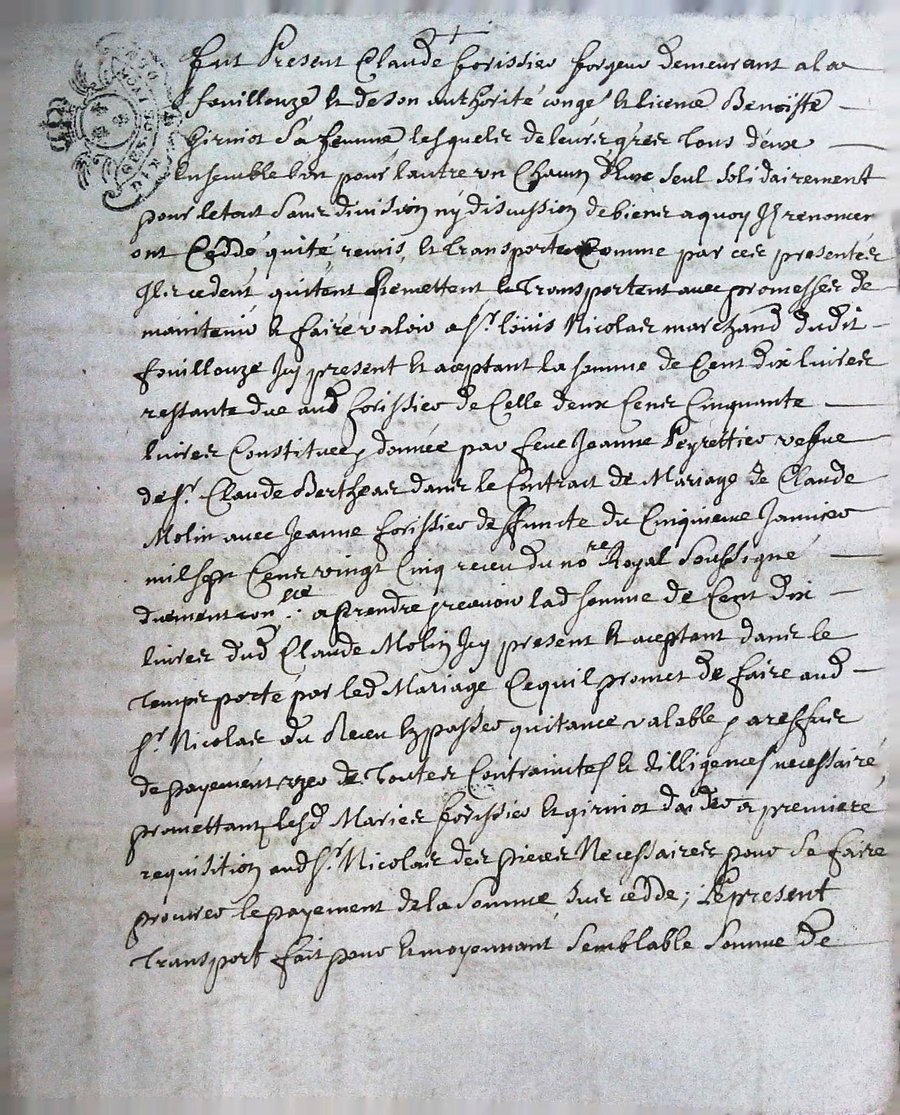 fut Present Claude forissier forgeur demeurant a la
fouillouze & de son authorité congé & licence Benoiste
Girniot sa femme lesquels de leurs grés tous deux
ensemble lun pour lautre un Chacun deux seul solidairement
pour le tout sans division ny discussion de biens a quoy Ils renoncer
ont Ceddé quité remis & transporté Comme par ces presentes
Ils cedent quitent Remettent & Transportent avec promesses de
maintenir & faire valoir a Sr. louis Nicolas marchand dudit
fouillouze Icy present & aceptant la somme de Cent dix livres
restante due aud forissier de Celle deux Cens Cinquante
livres Constituée, donnée par feue Jeanne Peyrettier vefve
de Sr. Claude Bertheas dans le Contract de Mariage de Claude
Molin avec Jeanne forissier deffuncte du Cinquieme Janvier
mil sept Cens vingt Cinq receu du nore Royal Soussigné
duement con.lle. a prendre recevoir lad somme de Cent dix
livres dud Claude Molin Icy present & aceptant dans le
temps porté par led Mariage Ce quil promet de faire aud
Sr. Nicolas du Receu & passer quitance valable, a reffus
de payement user de toutes Contraintes & dilligences necessaire,
promettant lesd Mariés forissier & girniot daider a premiere
requisition aud Sr. Nicolas des pieces Necessaires pour se faire
procurer le payement de la somme sus cedde; Le present
transport fait pour & moyennant semblable somme de